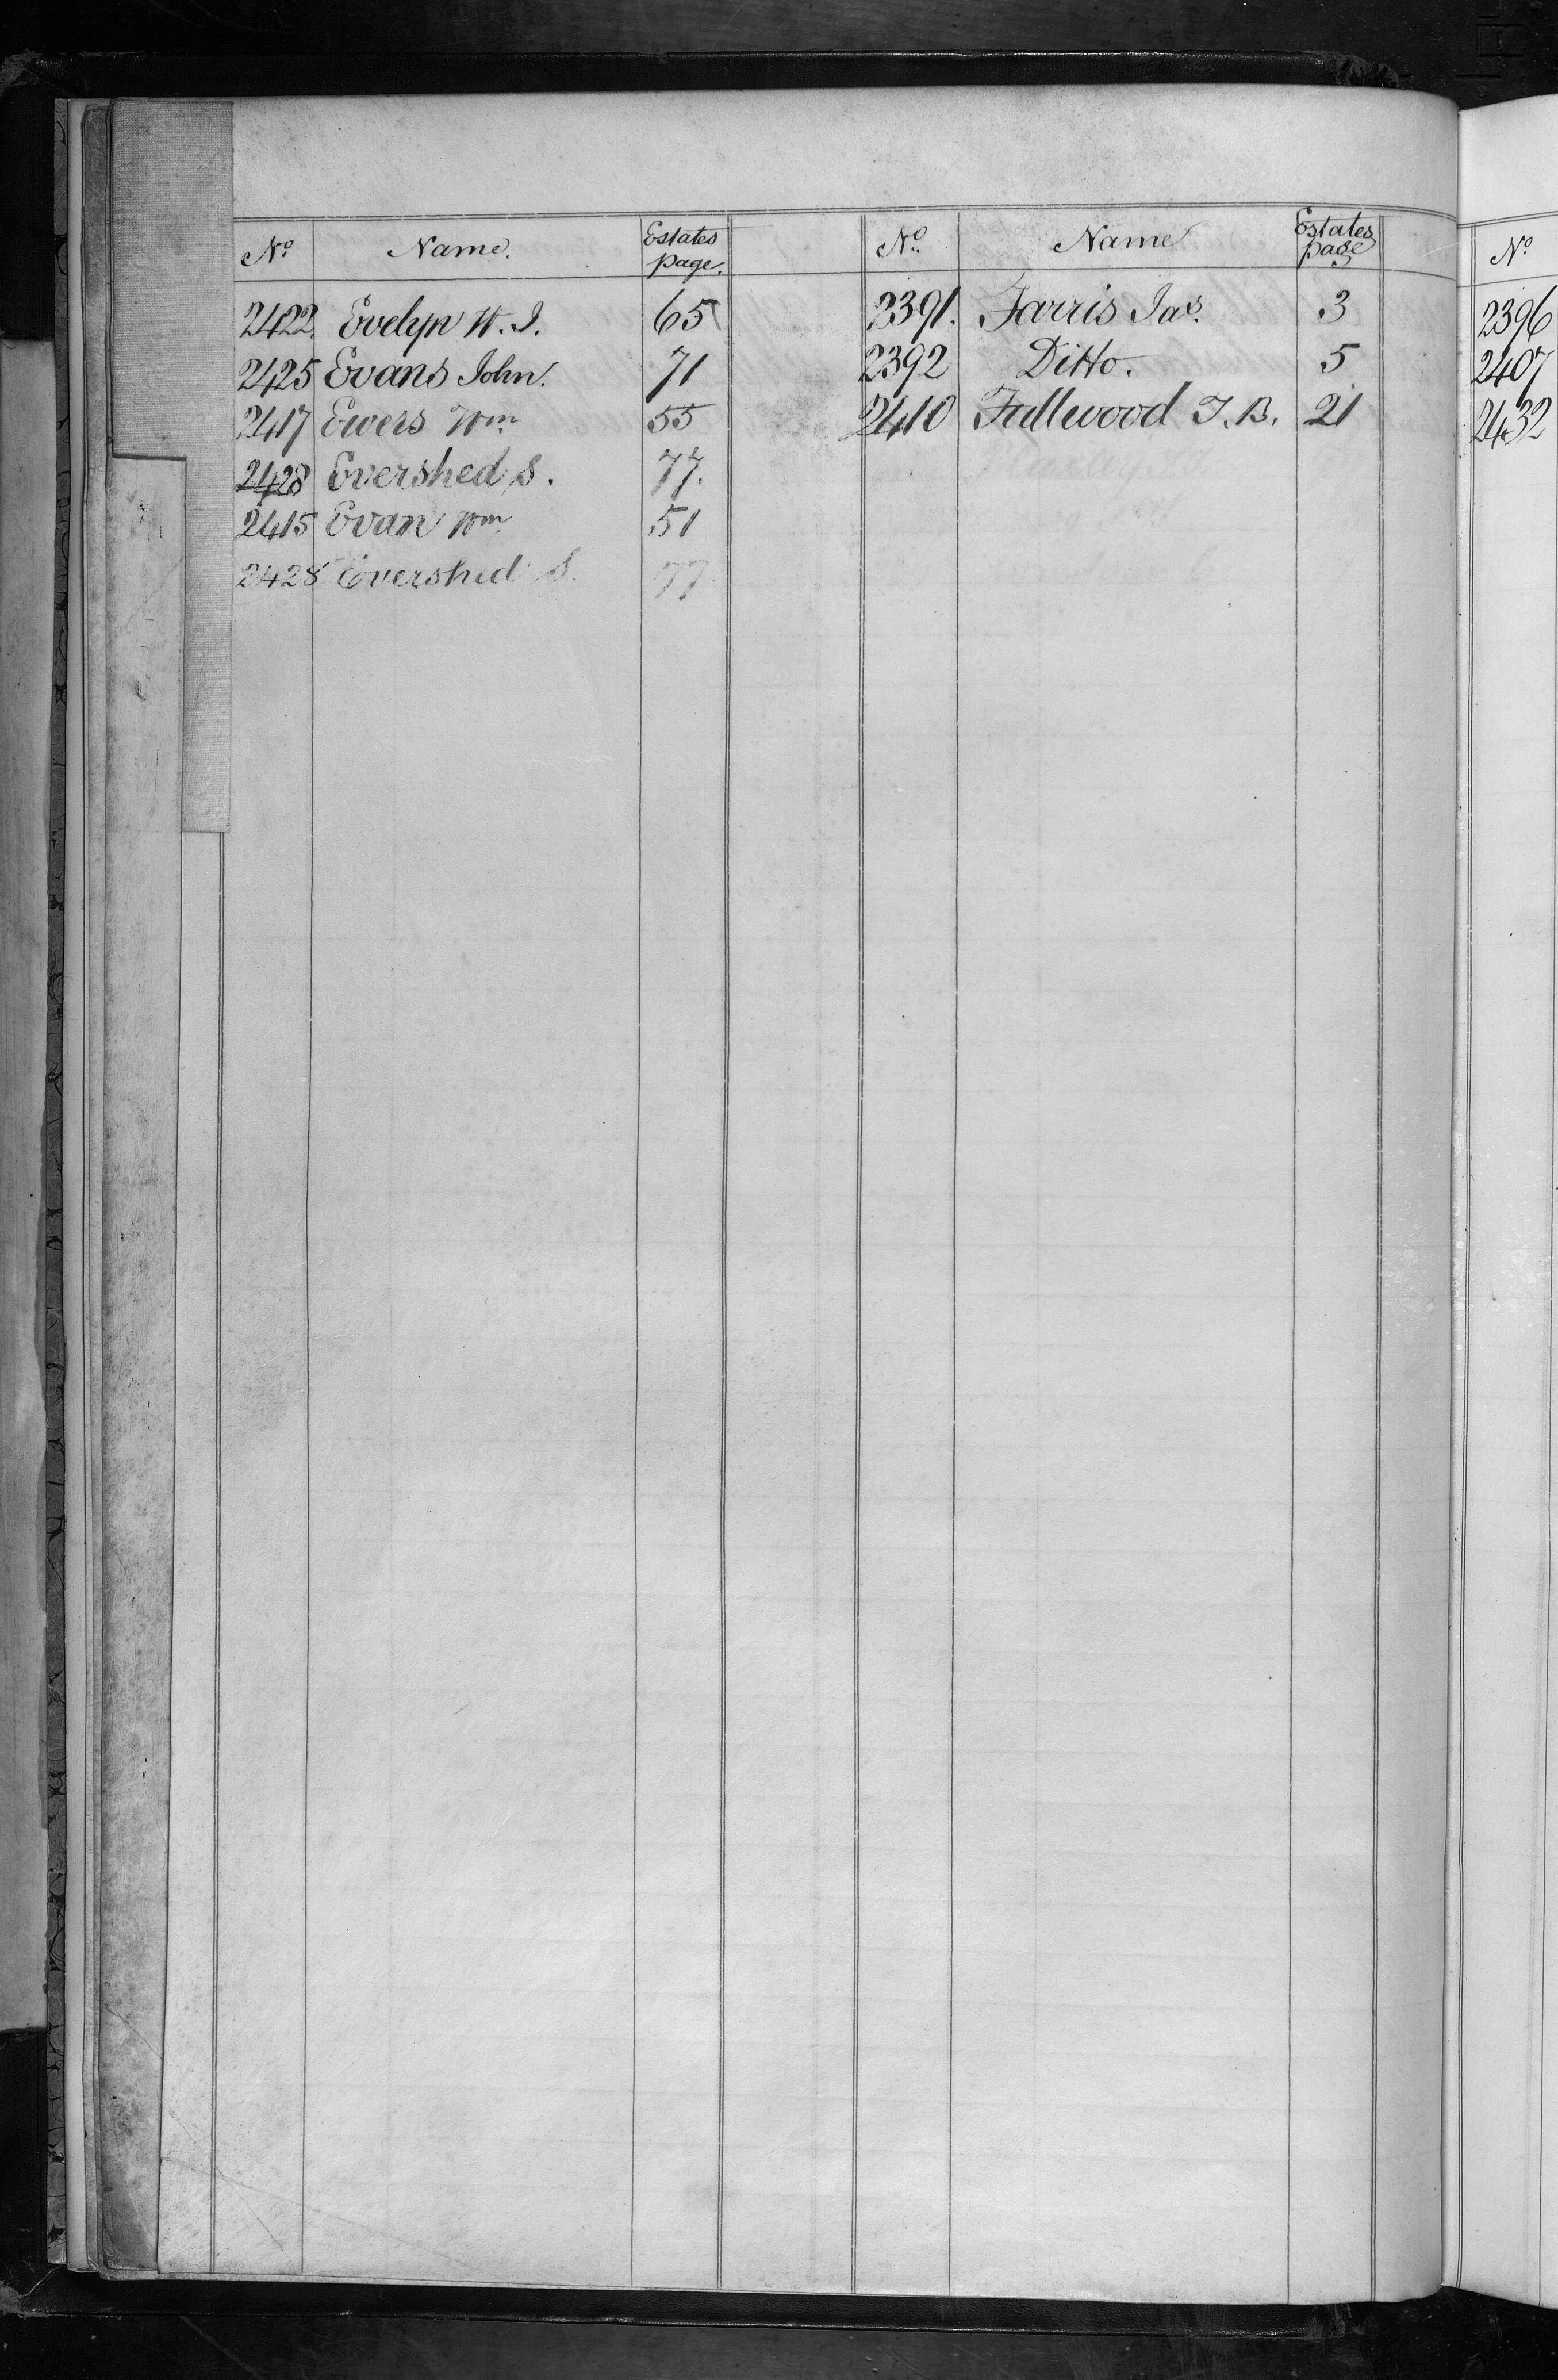 No Name. Estates page.
2422. Evelyn W. J. 65
2425 Evans John. 71
2417 Ewers Wm 55
2428 Evershed S. 77.
2415 Evan Wm 51
2428 Evershed S. 77
No. Name Estates page
2391. Farris Jas. 3
2392 Ditto. 5
2410 Fullwood J. B. 21
No
2396
2407
2432